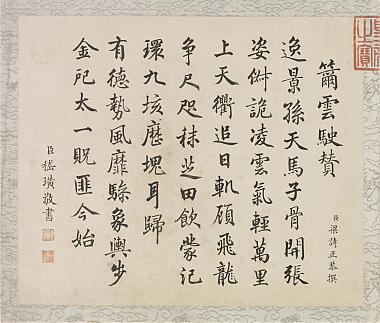 籋雲駛贊
臣梁詩正恭撰
逸景孫天馬子骨開張
姿俶詭凌雲氣輕萬里
上天衢追日軌頋飛龍
争尺咫秣芝田飲蒙汜
環九垓歷塊耳歸
有德勢風靡驂象輿步
金戺太一貺匪今始
臣嵇璜敬書